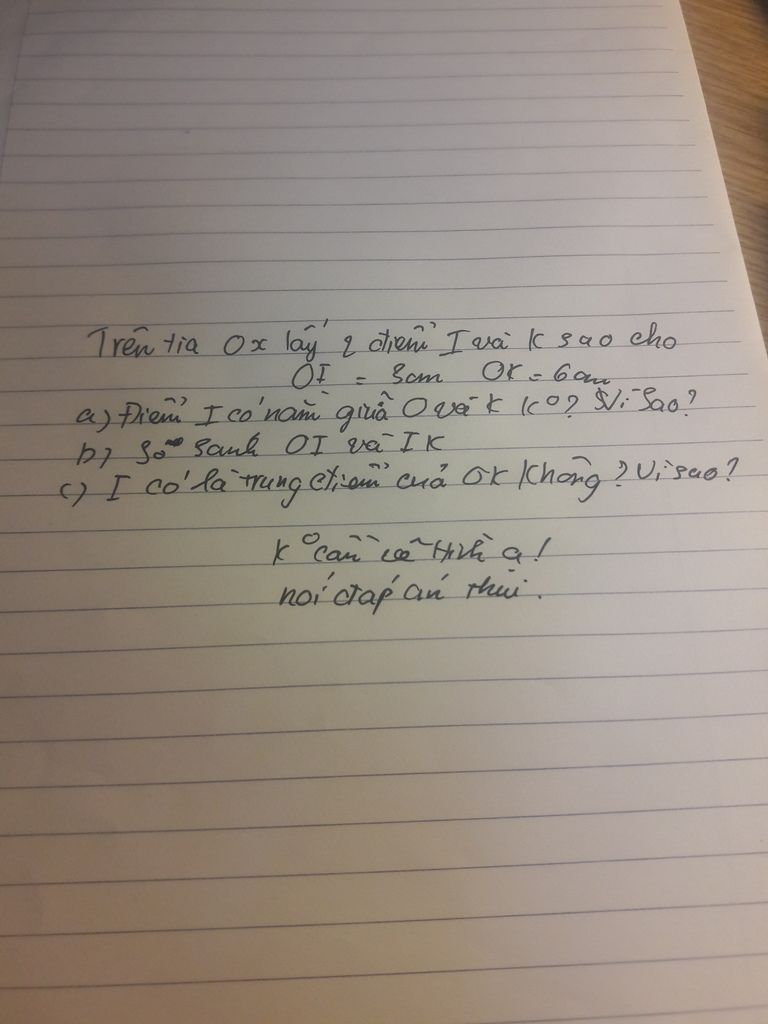 Trên tia Ox lấy 2 điểm I và K sao cho
OI = 3cm OK = 6cm
a) Điểm I có nằm giữa O và K k°? Vì sao?
b) So sánh OI và IK
c) I có là trung điểm của OK không? Vì sao?
k° cần vẽ hình ạ!
nói đáp án thui.